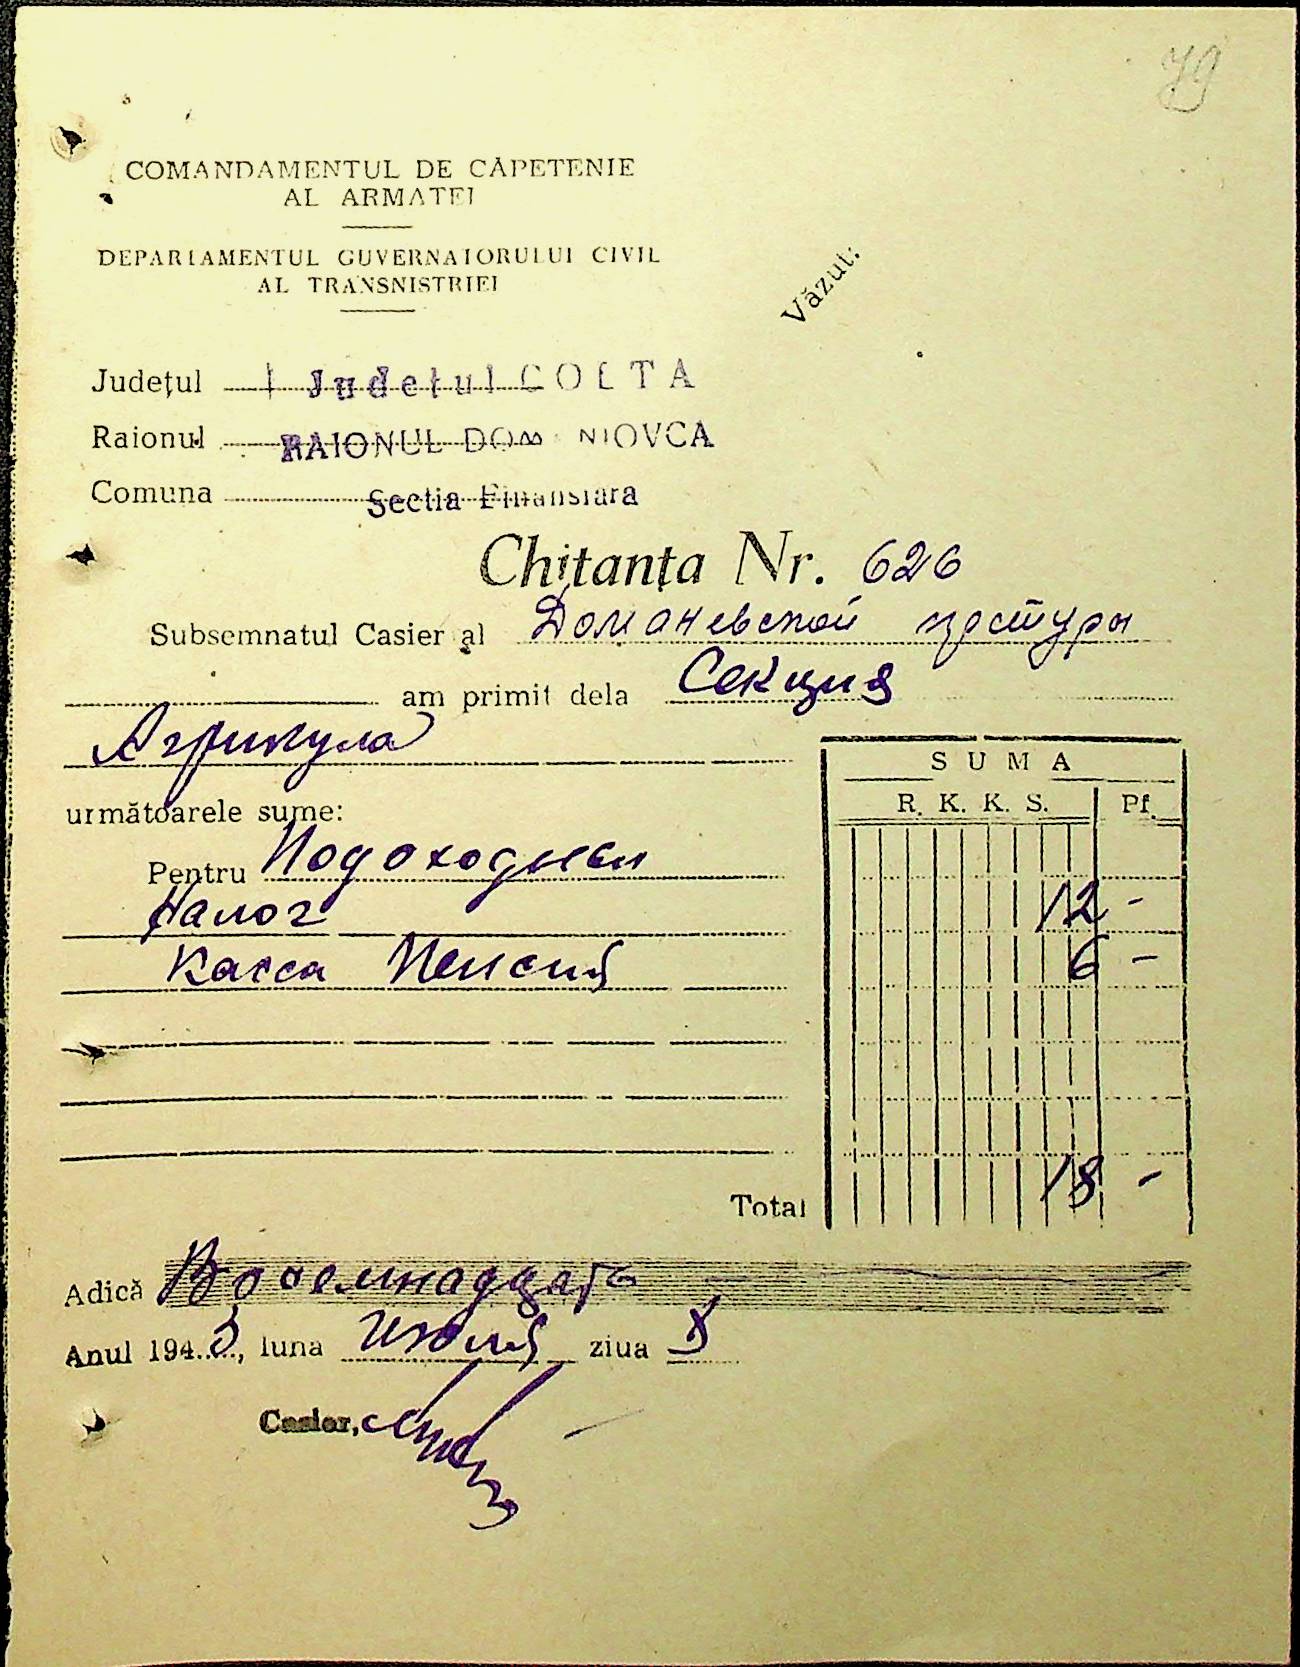 79
COMANDAMENTUL DE CĂPETENIE
AL ARMATEI
DEPARTAMENTUL GUVERNATORULUI CIVIL
AL TRANSNISTRIEI
Văzut:
Județul Judetul GOLTA
Raionul RAIONUL DOM NIOVCA
Comuna Sectia Finansiara
Chitanța Nr. 626
Subsemnatul Casier al Доманевской претуры
am primit dela Секция
Агрикула
următoarele sume:
SUMA
R. K. K. S. Pf.
Pentru Подоходный
Налог 12 -
Касса Пенсия 6 -
Total 18 -
Adică Восемнадцать
Anul 1943, luna Июля ziua 8
Casier,